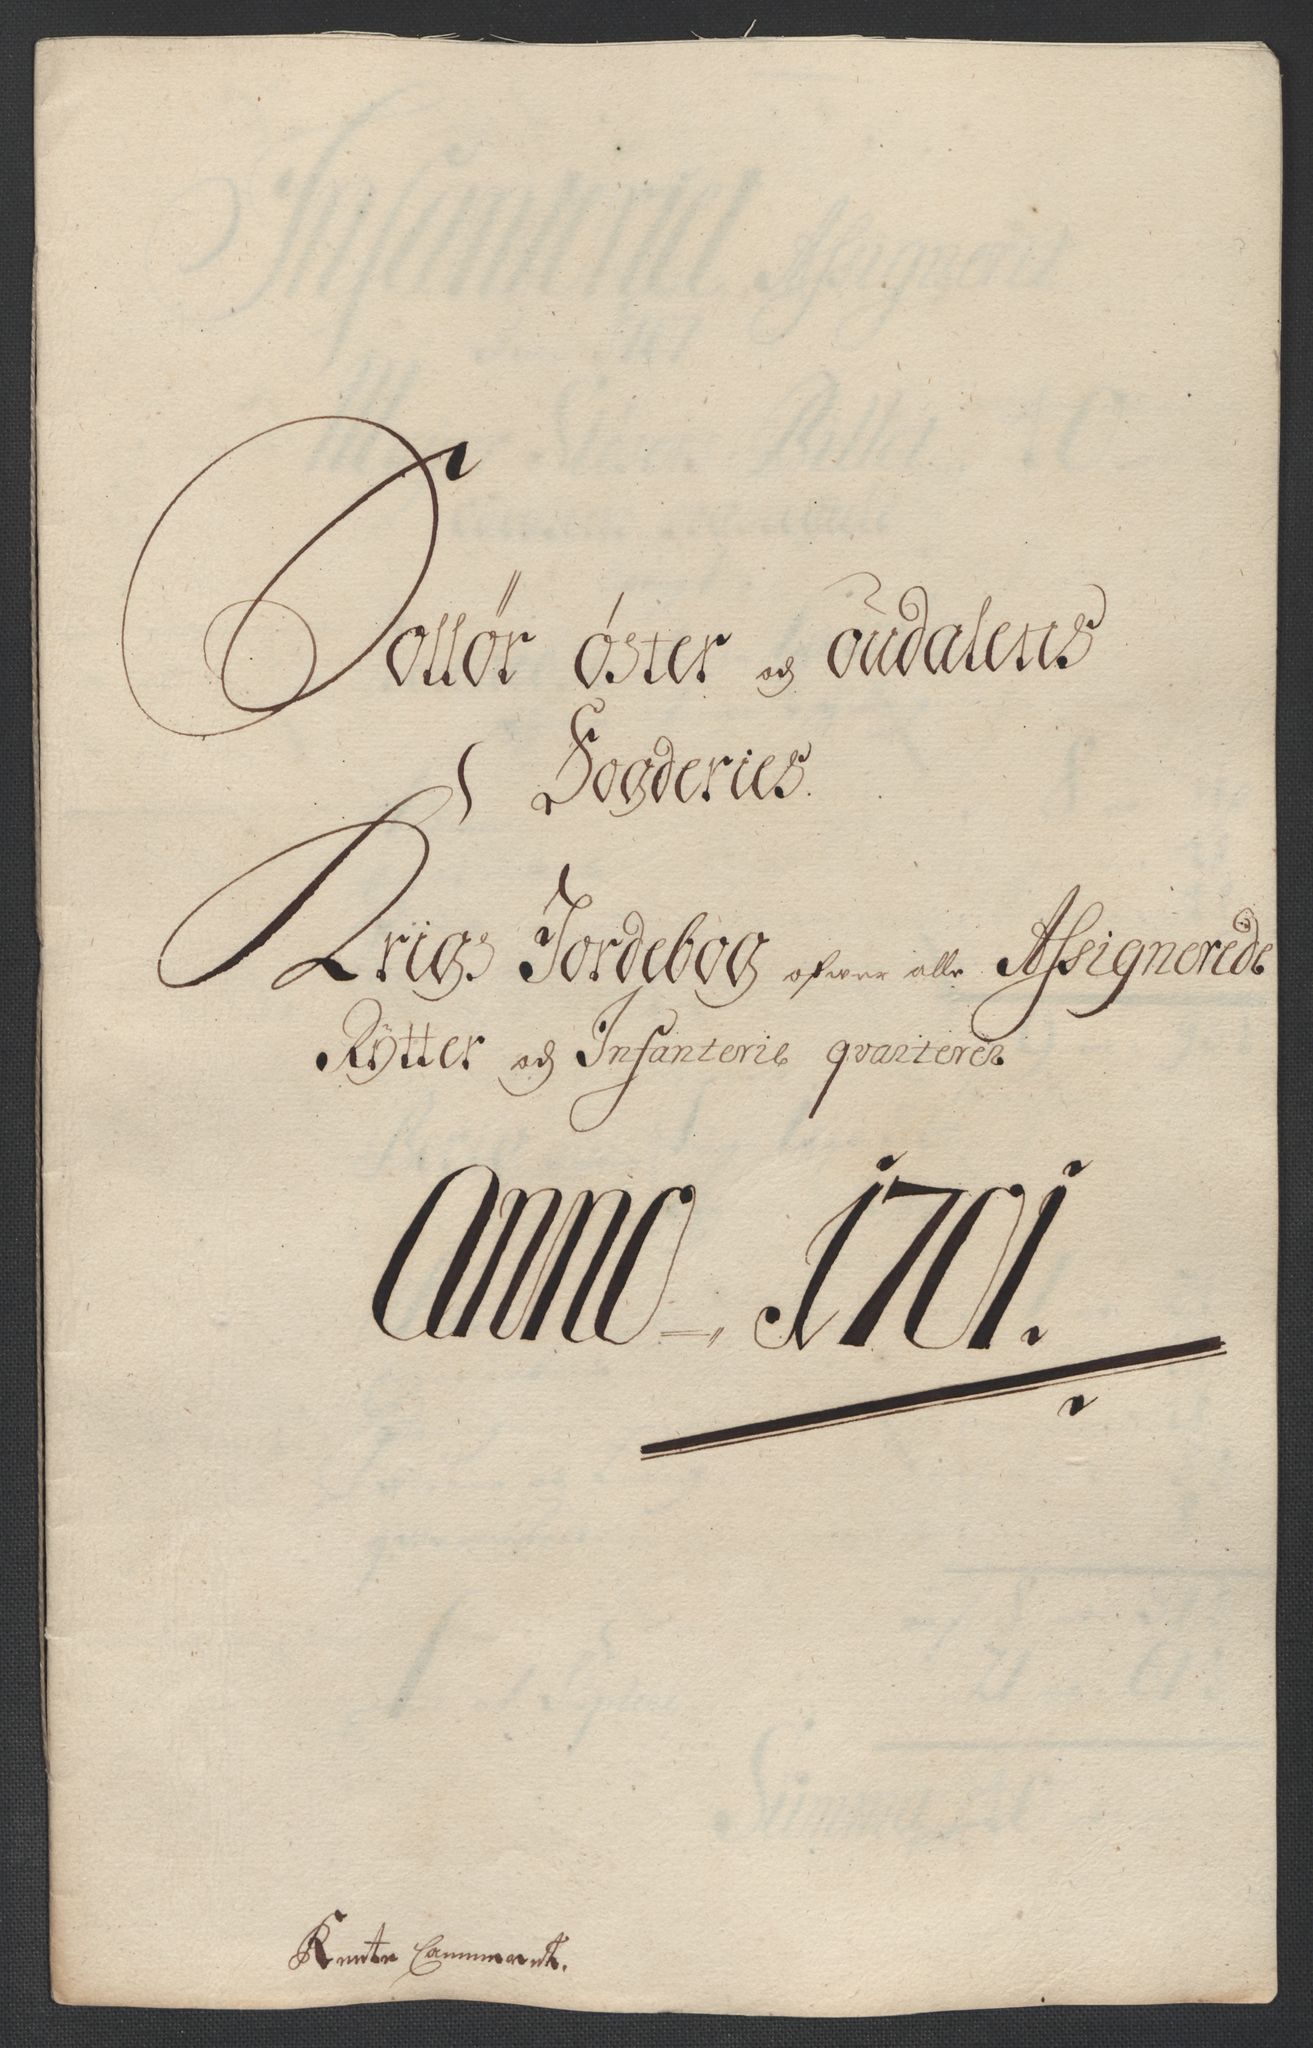 Sollør öster og oudalens
Fogderies
Krigs Jordebog ofwer alle Assignerede
Rÿtter og Infanterie qvarterer
Anno 1701.
Rente Cammeret.